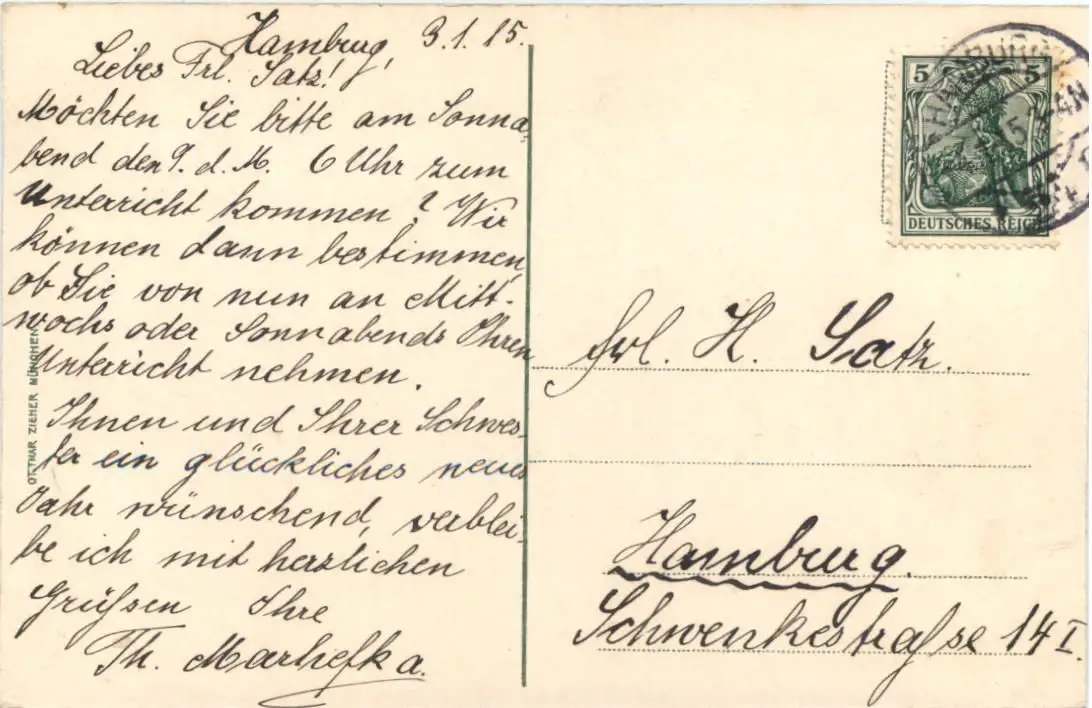 Hamburg, 3.1.15.
Liebes Frl. Satz!
Möchten Sie bitte am Sonna-
bend den 9. d. M. 6 Uhr zum
Unterricht kommen? Wir
können dann bestimmen,
ob Sie von nun an Mitt-
wochs oder Sonnabends Ihren
Unterricht nehmen.
Ihnen und Ihrer Schwes-
ter ein glückliches neues
Jahr wünschend, verblei-
be ich mit herzlichen
Grüßen Ihre
Th. Marhefka.
OTTHAR ZIEHER MÜNCHEN
5 5
DEUTSCHES REICH
HAMBURG
Frl. H. Satz.
Hamburg.
Schwenkestraße 14 I.